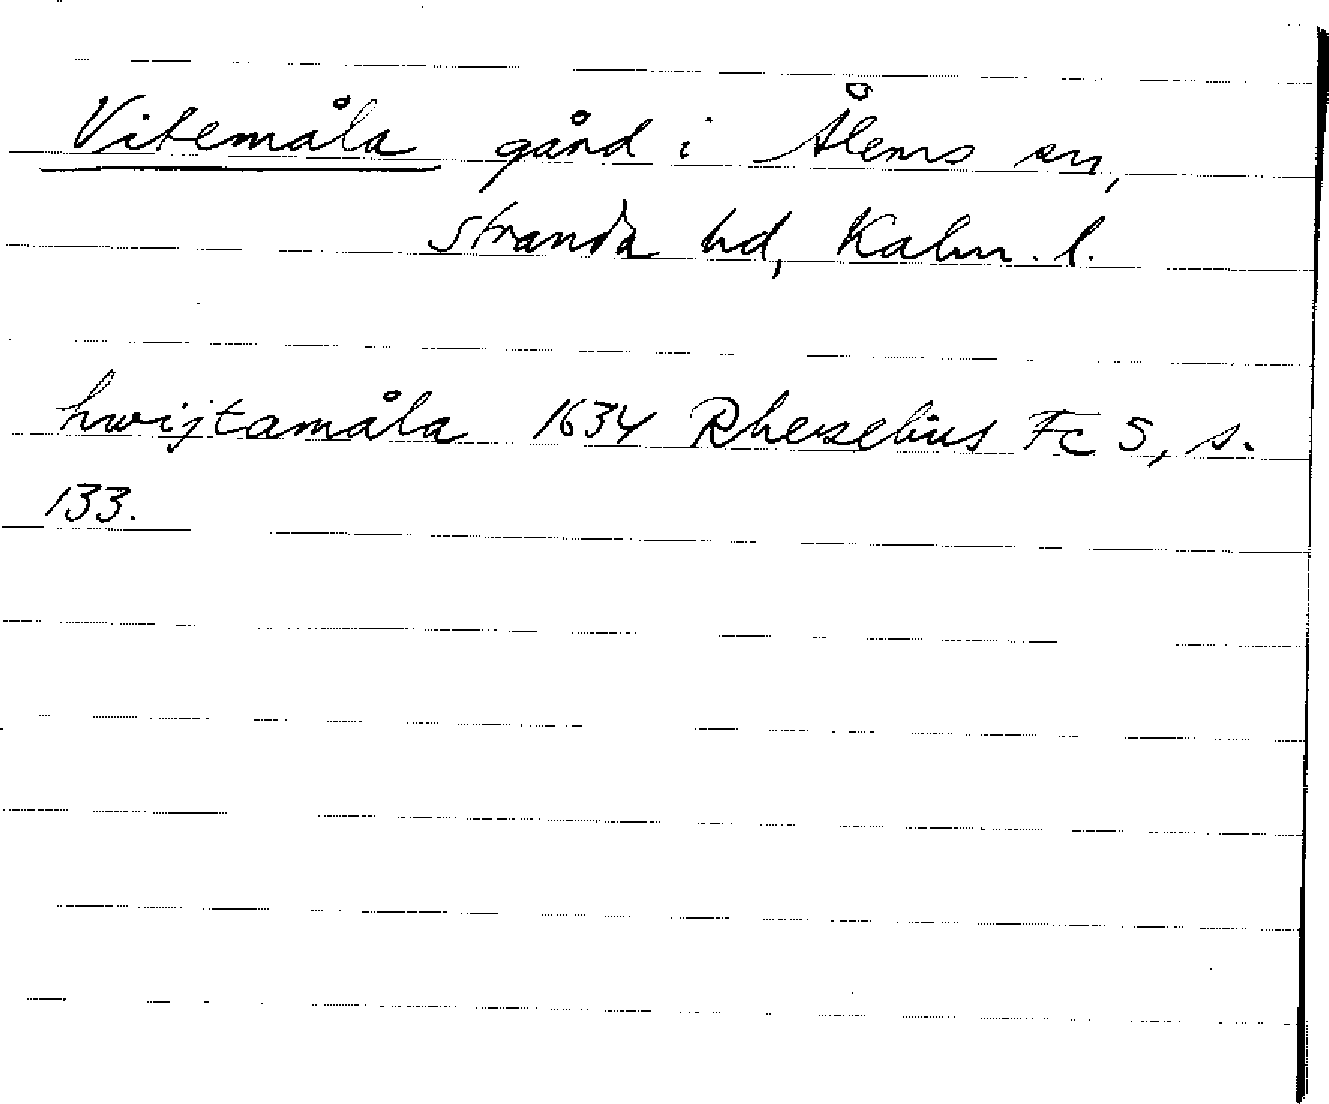 Vitemåla gård i Ålems sn,
Stranda hd, Kalm. l.
hwijtamåla 1634 Rhezelius Fc 5, s.
133.